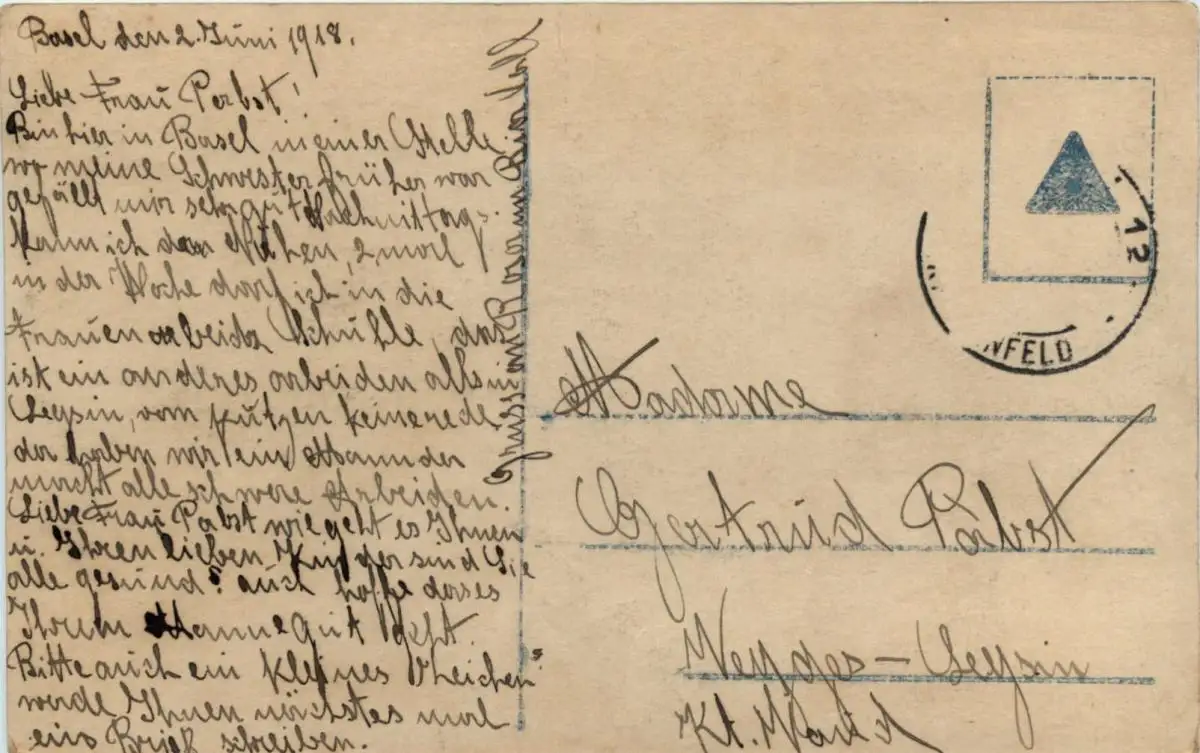 Basel den 2. Juni 1918.
Liebe Frau Perbst!
Bin hier in Basel in einer Stelle
wo meine Schwester früher war
gefällt mir sehr gut Nachmittags
kann ich dan Nähen, 2 mal
in der Woche darf ich in die
Frauen arbeids Schulle, das
ist ein anderes arbeiden alls in
Leysin, vom putzen keine rede
da haben wir ein Mann der
macht alle schwere Arbeiden.
Liebe Frau Pabst wie geht es Ihnen
u. Ihren lieben Kinder sind Sie
alle gesund? auch hoffe das es
Ihrem Manne gut geht.
Bitte auch ein kleines
werde Ihnen nächstes mal
eins Brief schreiben.
Gruss an Rosa
Madame
Gertrud Pabst
Leysin
Kt. Waud
NFELD
12